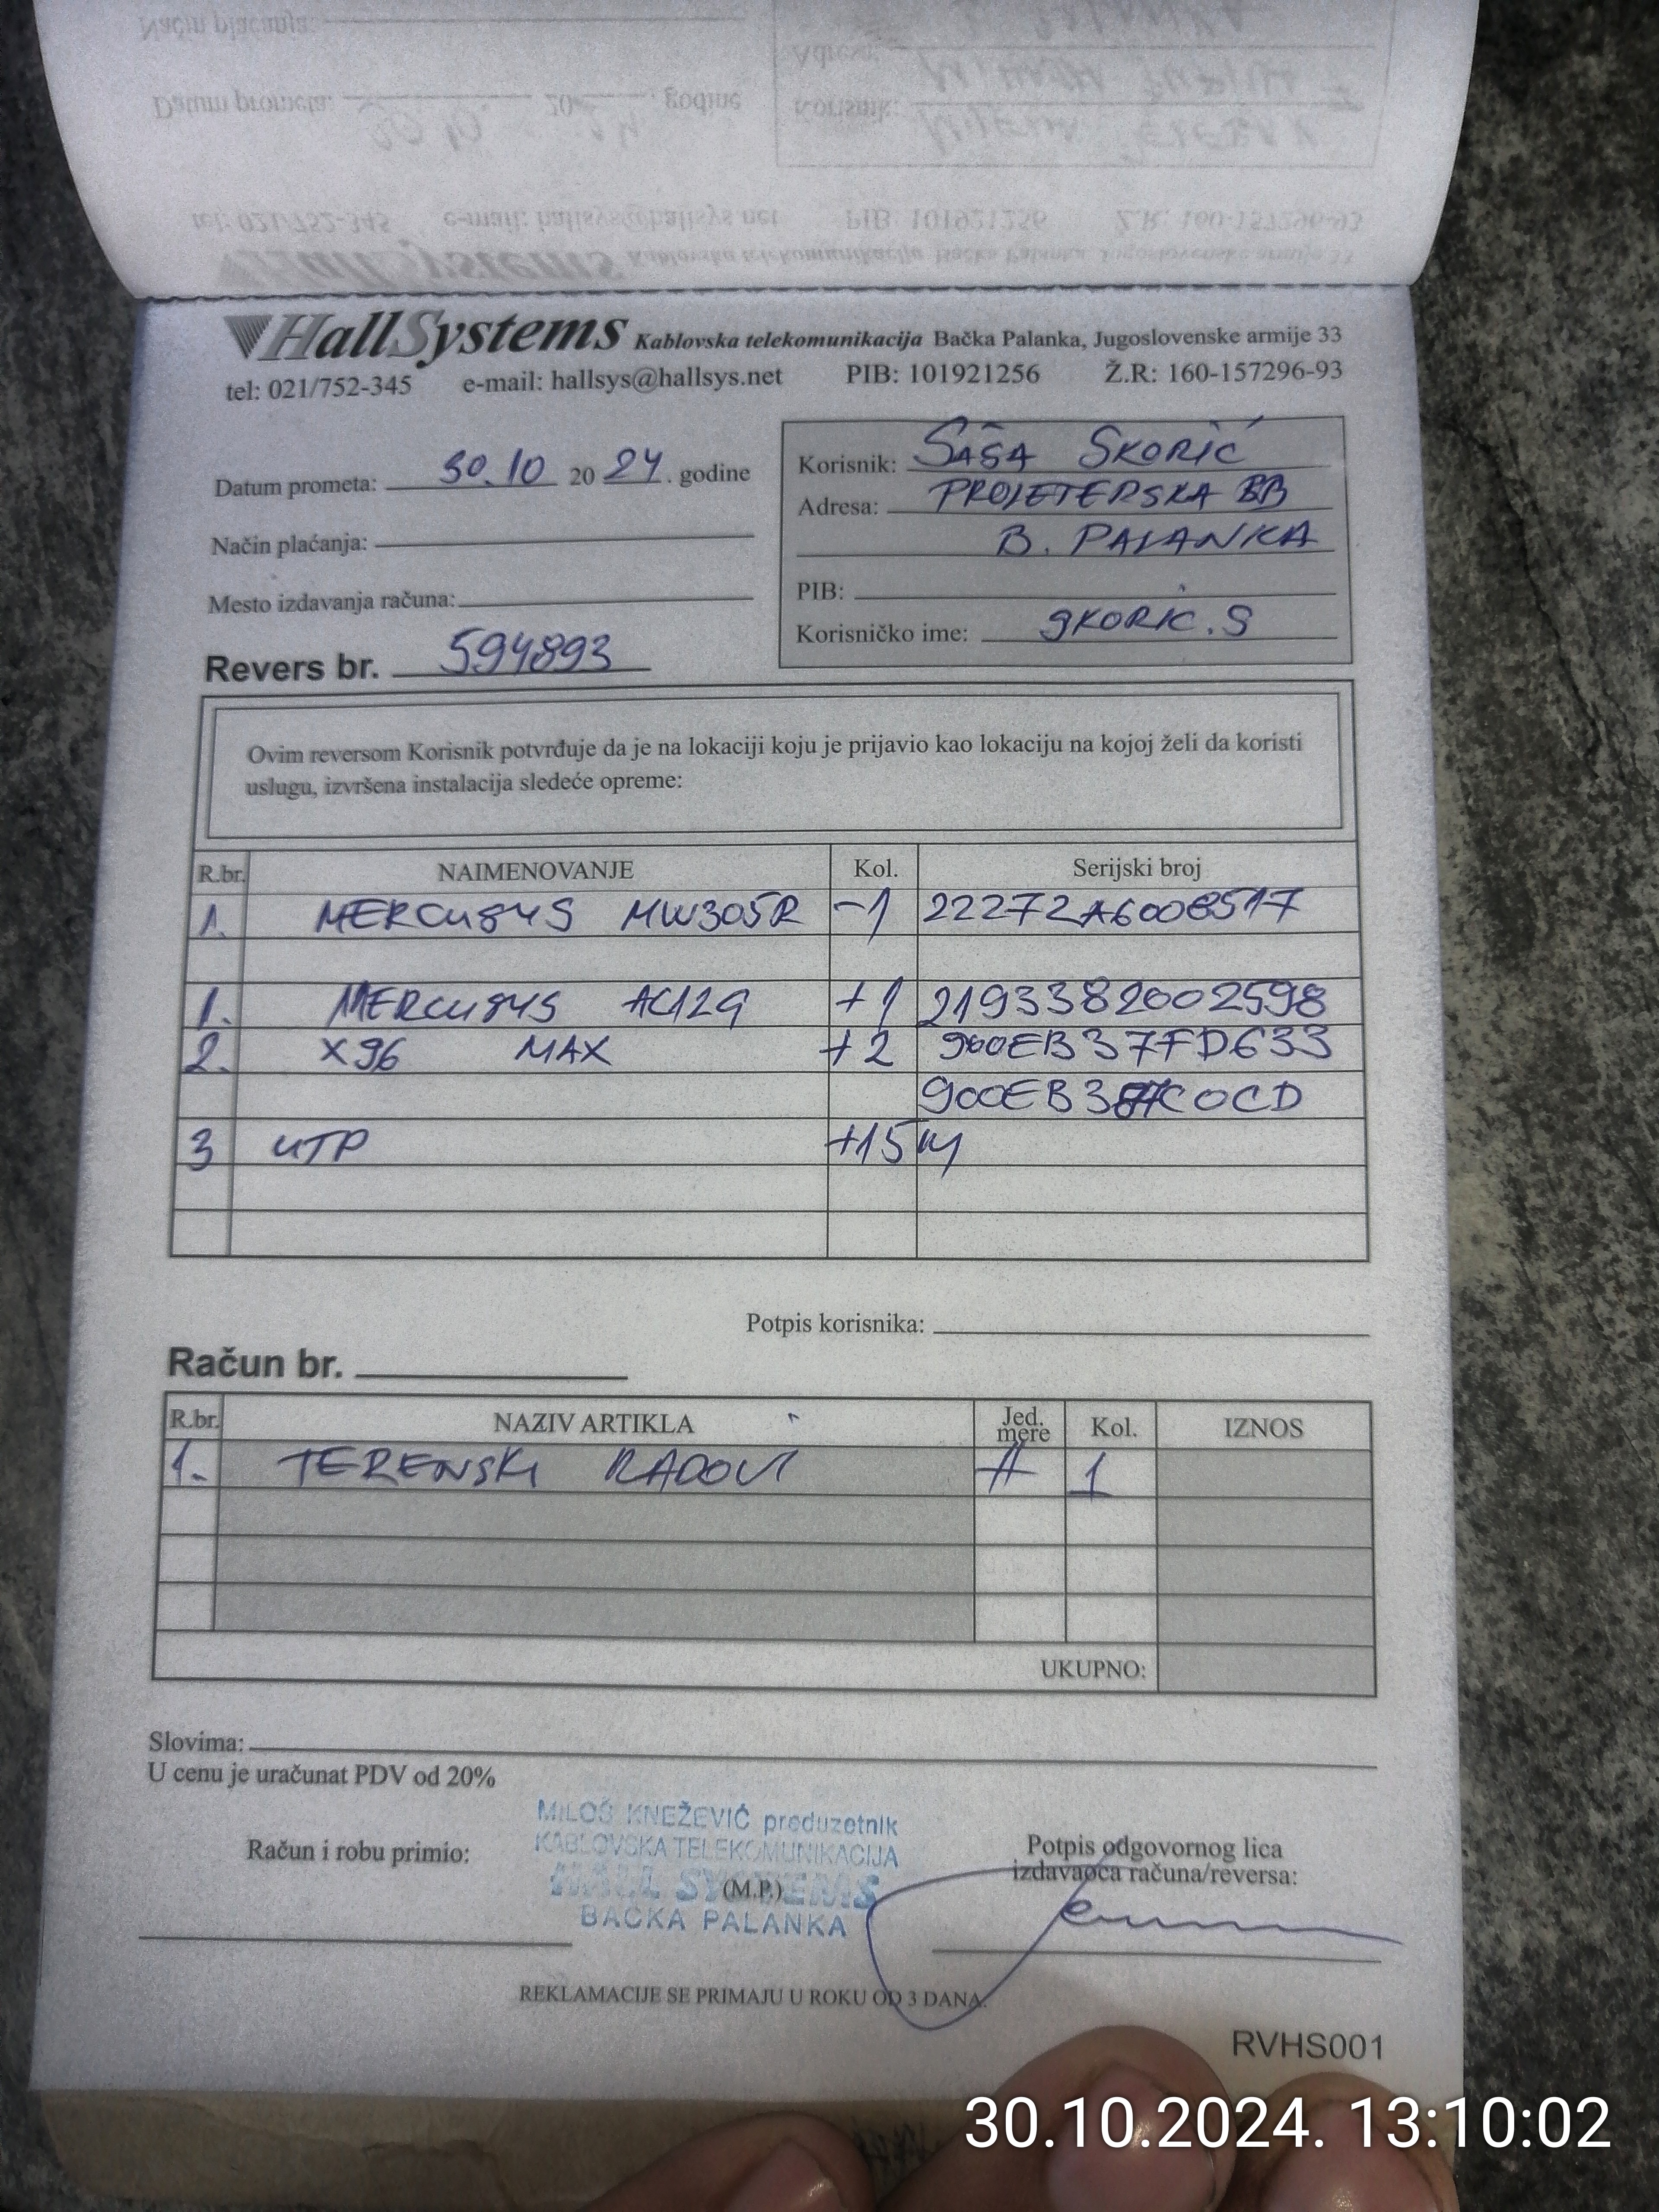 HallSystems Kablovska telekomunikacija Bačka Palanka, Jugoslovenske armije 33
tel: 021/752-345 e-mail: hallsys@hallsys.net PIB: 101921256 Ž.R: 160-157296-93
Datum prometa: 30.10 2024. godine
Način plaćanja:
Mesto izdavanja računa:
Revers br. 594893
Korisnik: SAŠA SKORIĆ
Adresa: PROLETERSKA BB
B. PALANKA
PIB:
Korisničko ime: SKORIC.S
Ovim reversom Korisnik potvrđuje da je na lokaciji koju je prijavio kao lokaciju na kojoj želi da koristi
uslugu, izvršena instalacija sledeće opreme:
R.br. NAIMENOVANJE Kol. Serijski broj
1. MERCUSYS MW305R -1 22272A6008517
1. MERCUSYS AC12G +1 2193382002598
2. X96 MAX +2 900EB37FD633
3 UTP +15 M
Potpis korisnika:
Račun br.
R.br. NAZIV ARTIKLA Jed. mere Kol. IZNOS
1. TERENSKI RADOVI # 1
UKUPNO:
Slovima:
U cenu je uračunat PDV od 20%
Račun i robu primio:
MILOŠ KNEŽEVIĆ preduzetnik
KABLOVSKA TELEKOMUNIKACIJA
HALL SYSTEMS
(M.P.)
BAČKA PALANKA
Potpis odgovornog lica
izdavaoca računa/reversa:
REKLAMACIJE SE PRIMAJU U ROKU OD 3 DANA.
RVHS001
30.10.2024. 13:10:02